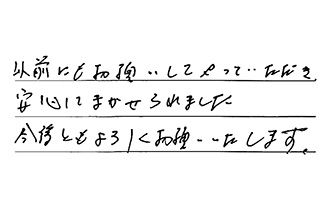 以前にもお願いしてやっていただき
安心してまかせられました
今後ともよろしくお願いいたします。